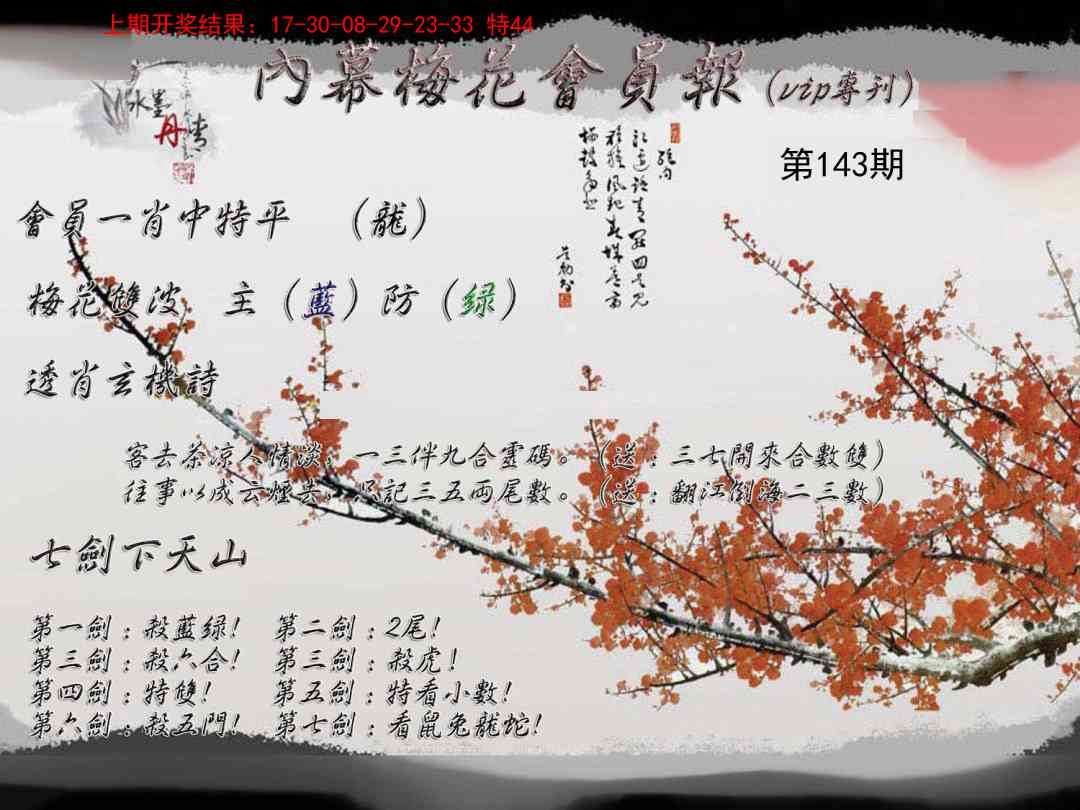 上期开奖结果：17-30-08-29-23-33 特44
內幕梅花會員報（vip專刊）
水墨
丹青
第143期
會員一肖中特平 （龍）
梅花雙波 主（藍）防（绿）
透肖玄機詩
客去茶凉人情淡，一三伴九合靈碼。（送：三七開來合數雙）
往事以成云煙去，忘記三五兩尾數。（送：翻江倒海二三數）
七劍下天山
第一劍：殺藍绿！ 第二劍：2尾！
第三劍：殺六合！ 第三劍：殺虎！
第四劍：特雙！ 第五劍：特看小數！
第六劍：殺五門！ 第七劍：看鼠兔龍蛇！